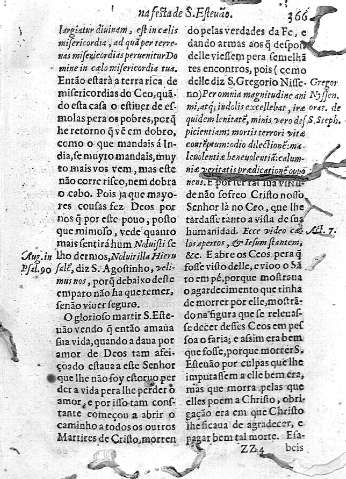 na festa de S. Esteuão. 366
largiatur diuinam, est in cælis
misericordia, ad quã per terre-
nas misericordias peruenitur Do
mine in cælo misericordia tua.
Então estará a terra rica de
misericordias do Ceo, quã-
do esta casa o estiuer de es-
molas pera os pobres, porq̃
lhe retorno q̃ vẽ em dobro,
como o que mandais á In-
dia, se muyto mandais, muy
to mais vos vem, mas este
não corre risco, nem dobra
o cabo. Pois ja que mayo-
res cousas fez Deos por
nos q̃ por este pouo, posto
que mimoso, vede quanto
mais sentirá hum Noluisti se
lho dermos, Noluit illa Hieru
salẽ, diz S. Agostinho, veli-
mus nos, porq̃ debaixo deste
emparo não ha que temer,
senão viuer seguro.
O glorioso martir S. Este-
uão vendo q̃ então amaua
sua vida, quando a daua por
amor de Deos tam afei-
çoado estaua a este Senhor
que lhe não foy estoruo per
der a vida pera lhe perder o
amor, e por isso tam cons-
tante começou a abrir o
caminho a todos os outros
Martires de Cristo, morren
Aug. in
Psal. 90
do pelas verdades da Fe, e
dando armas aos q̃ despois
delle viessem pera semelhã
tes encontros, pois (como
delle diz S. Gregorio Nisse-
no) Per omnia magnitudine ani
mi, atq; indolis excellebat, ira
quidem lenitatè, minis vero des
picientiam; mortis terrori vitæ
contẽptum: odio dilectionẽ: ma
leuolentiæ beneuolentiã: calum
niæ veritatis prædicationẽ oppo
nens. E por ter tal virtu-
de não sofreo Cristo nosso
Senhor là no Ceo, que lhe
tardasse tanto a vista de sua
humanidad. Ecce video cæ
los apertos, & Iesum stantem,
&c. E abre os Ceos pera q̃
fosse visto delle, e vioo o Sã
to em pè, porque mostraua
o agardecimento que tinha
de morrer por elle, mostrã-
do na figura que se releuas-
se decer desses Ceos em pes
soa o faria; e assim era bem
que fosse, porque morrer S.
Esteuão por culpas que lhe
imputassem a elle bem era,
mas que morra pelas que
elles poem a Christo, obri-
gação era em que Christo
lhe ficaua de agradecer, e
pagar bem tal morte. E sa-
Gregor
Nyssen.
orat. de
S. Steph.
Act. 7.
ZZ 4 beis